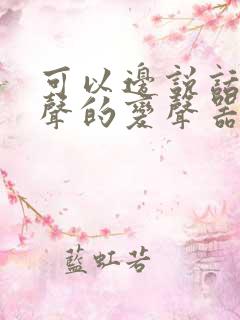 可以邊說話
聲的變聲器
藍虹若